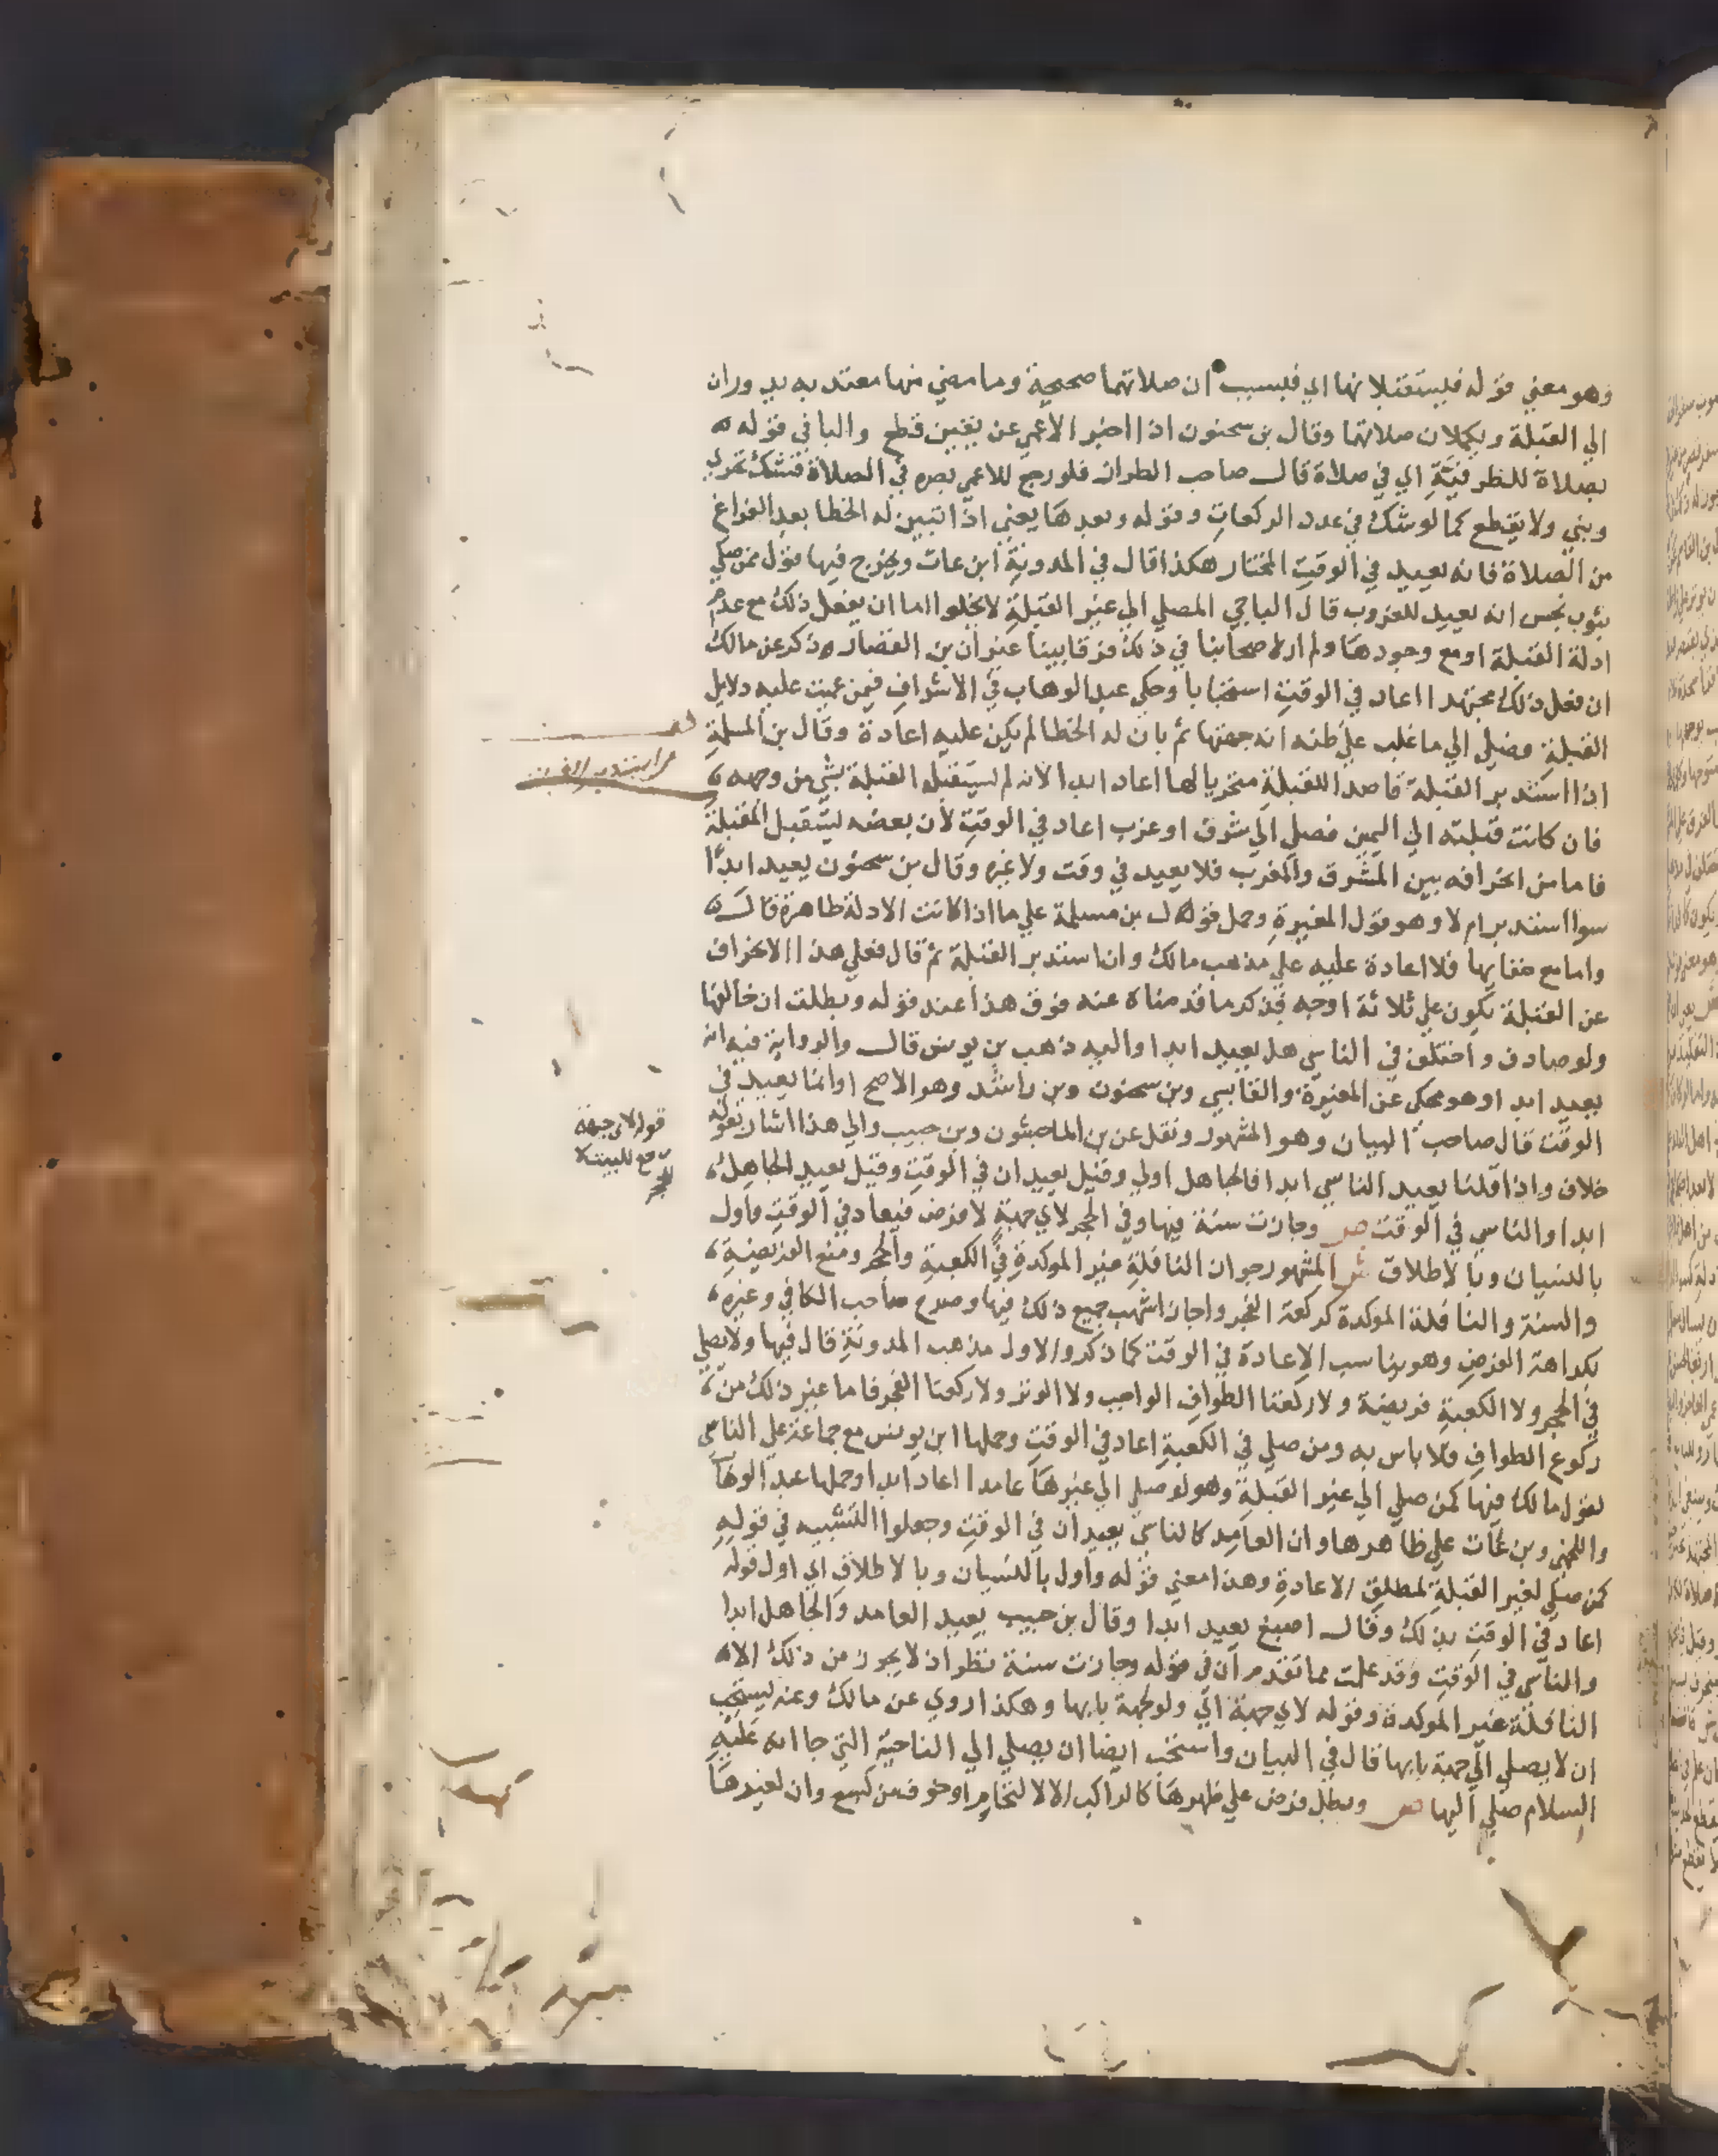 وهو معني قوله فليستقبلانها اي فبسبب ان صلاتهما صحيحة وما مضي منها معتد به يدوران
الي القبلة ويكملان صلاتهما وقال بن سحنون اذا اخبر الاعمي عن يقين قطع والبا في قوله
بصلاة للظرفية اي في صلاة قال صاحب الطراز فلو رجع للاعمي بصره في الصلاة فشك تحري
وبني ولا يقطع كما لو شك في عدد الركعات وقوله وبعدها يعني اذا تبين له الخطا بعد الفراغ
من الصلاة فانه يعيد في الوقت المختار هكذا قال في المدونة ابن عات ويخرج فيها قول ممن صلي
بثوب نجس انه يعيد للغروب قال الباجي المصلي الي غير القبلة لا يخلوا اما ان يفعل ذلك مع عدم
ادلة القبلة او مع وجودها ولم ار لاصحابنا في ذلك فرقا بينا غير ان بن القصار ذكر عن مالك
ان فعل ذلك مجتهدا اعاد في الوقت استحبابا وحكي عبد الوهاب في الاشراف فيمن عميت عليه دلايل
القبلة فصلي الي ما غلب علي ظنه انه جهتها ثم بان له الخطا لم يكن عليه اعادة وقال بن المسلمة
اذا استدبر القبلة قاصدا للقبلة متحريا لها اعاد ابدا لانه لم يستقبل القبلة بشي من وجهه
فان كانت قبلته الي اليمين فصلي الي شرق او غرب اعاد في الوقت لان بعضه يستقبل القبلة
فاما من انحرافه بين المشرق والمغرب فلا يعيد في وقت ولا غيره وقال بن سحنون يعيد ابدا
سوا استدبر ام لا وهو قول المغيرة وحمل قول بن مسلمة علي ما اذا كانت الادلة ظاهرة قال
واما مع خفايها فلا اعادة عليه علي مذهب مالك وان استدبر القبلة ثم قال فعلي هذا الانحراف
عن القبلة يكون علي ثلاثة اوجه فذكر ما قدمناه عنه فوق هذا عند قوله وبطلت ان خالفها
ولو صادف واختلف في الناسي هل يعيد ابدا واليه ذهب بن يونس قال والرواية فيه انه
يعيد ابدا وهو محكي عن المغيرة والقابسي وبن سحنون وبن راشد وهو الاصح او انما يعيد في
الوقت قال صاحب البيان وهو المشهور ونقل عن بن الماجشون وبن حبيب والي هذا اشار بقوله
خلاف واذا قلنا يعيد الناسي ابدا فالجاهل اولي وقيل يعيدان في الوقت وقيل يعيد الجاهل
ابدا والناسي في الوقت ص وجازت سنة فيها وفي الحجر لاي جهة لا فرض فيعاد في الوقت واول
بالنسيان وبالاطلاق ش المشهور جواز النافلة غير الموكدة في الكعبة والحجر ومنع الفريضة
والسنة والنافلة الموكدة كركعة الفجر واجاز اشهب جميع ذلك فيها وصرح صاحب الكافي وغيره
بكراهة الفرض وهو يناسب الاعادة في الوقت كما ذكر والاول مذهب المدونة قال فيها ولا يصلي
في الحجر ولا الكعبة فريضة ولا ركعتا الطواف الواجب ولا الوتر ولا ركعتا الفجر فاما غير ذلك من
ركوع الطواف فلا باس به ومن صلي في الكعبة اعاد في الوقت وحملها ابن يونس مع جماعة علي الناسي
لقول مالك فيها كمن صلي الي غير القبلة وهو لو صلي الي غيرها عامدا اعاد ابدا وحملها عبد الوهاب
واللخمي وبن عات علي ظاهرها وان العامد كالناسي يعيدان في الوقت وجعلوا التشبيه في قوله
كمن صلي لغير القبلة لمطلق الاعادة وهذا معني قوله واول بالنسيان وبالاطلاق اي اول قوله
اعاد في الوقت بذلك وقال اصبغ يعيد ابدا وقال بن حبيب يعيد العامد والجاهل ابدا
والناسي في الوقت وقد علمت مما تقدم ان في قوله وجازت سنة نظر اذ لا يجوز من ذلك الا
النافلة غير الموكدة وقوله لاي جهة اي ولو لجهة بابها وهكذا روي عن مالك وعنه يستحب
ان لا يصلي الي جهة بابها قال في البيان واستحب ايضا ان يصلي الي الناحية التي جا انه عليه
السلام صلي اليها ص وبطل فرض علي ظهرها كالراكب الا لالتحام او خوف من كسبع وان لغيرها
قوله لاي جهة